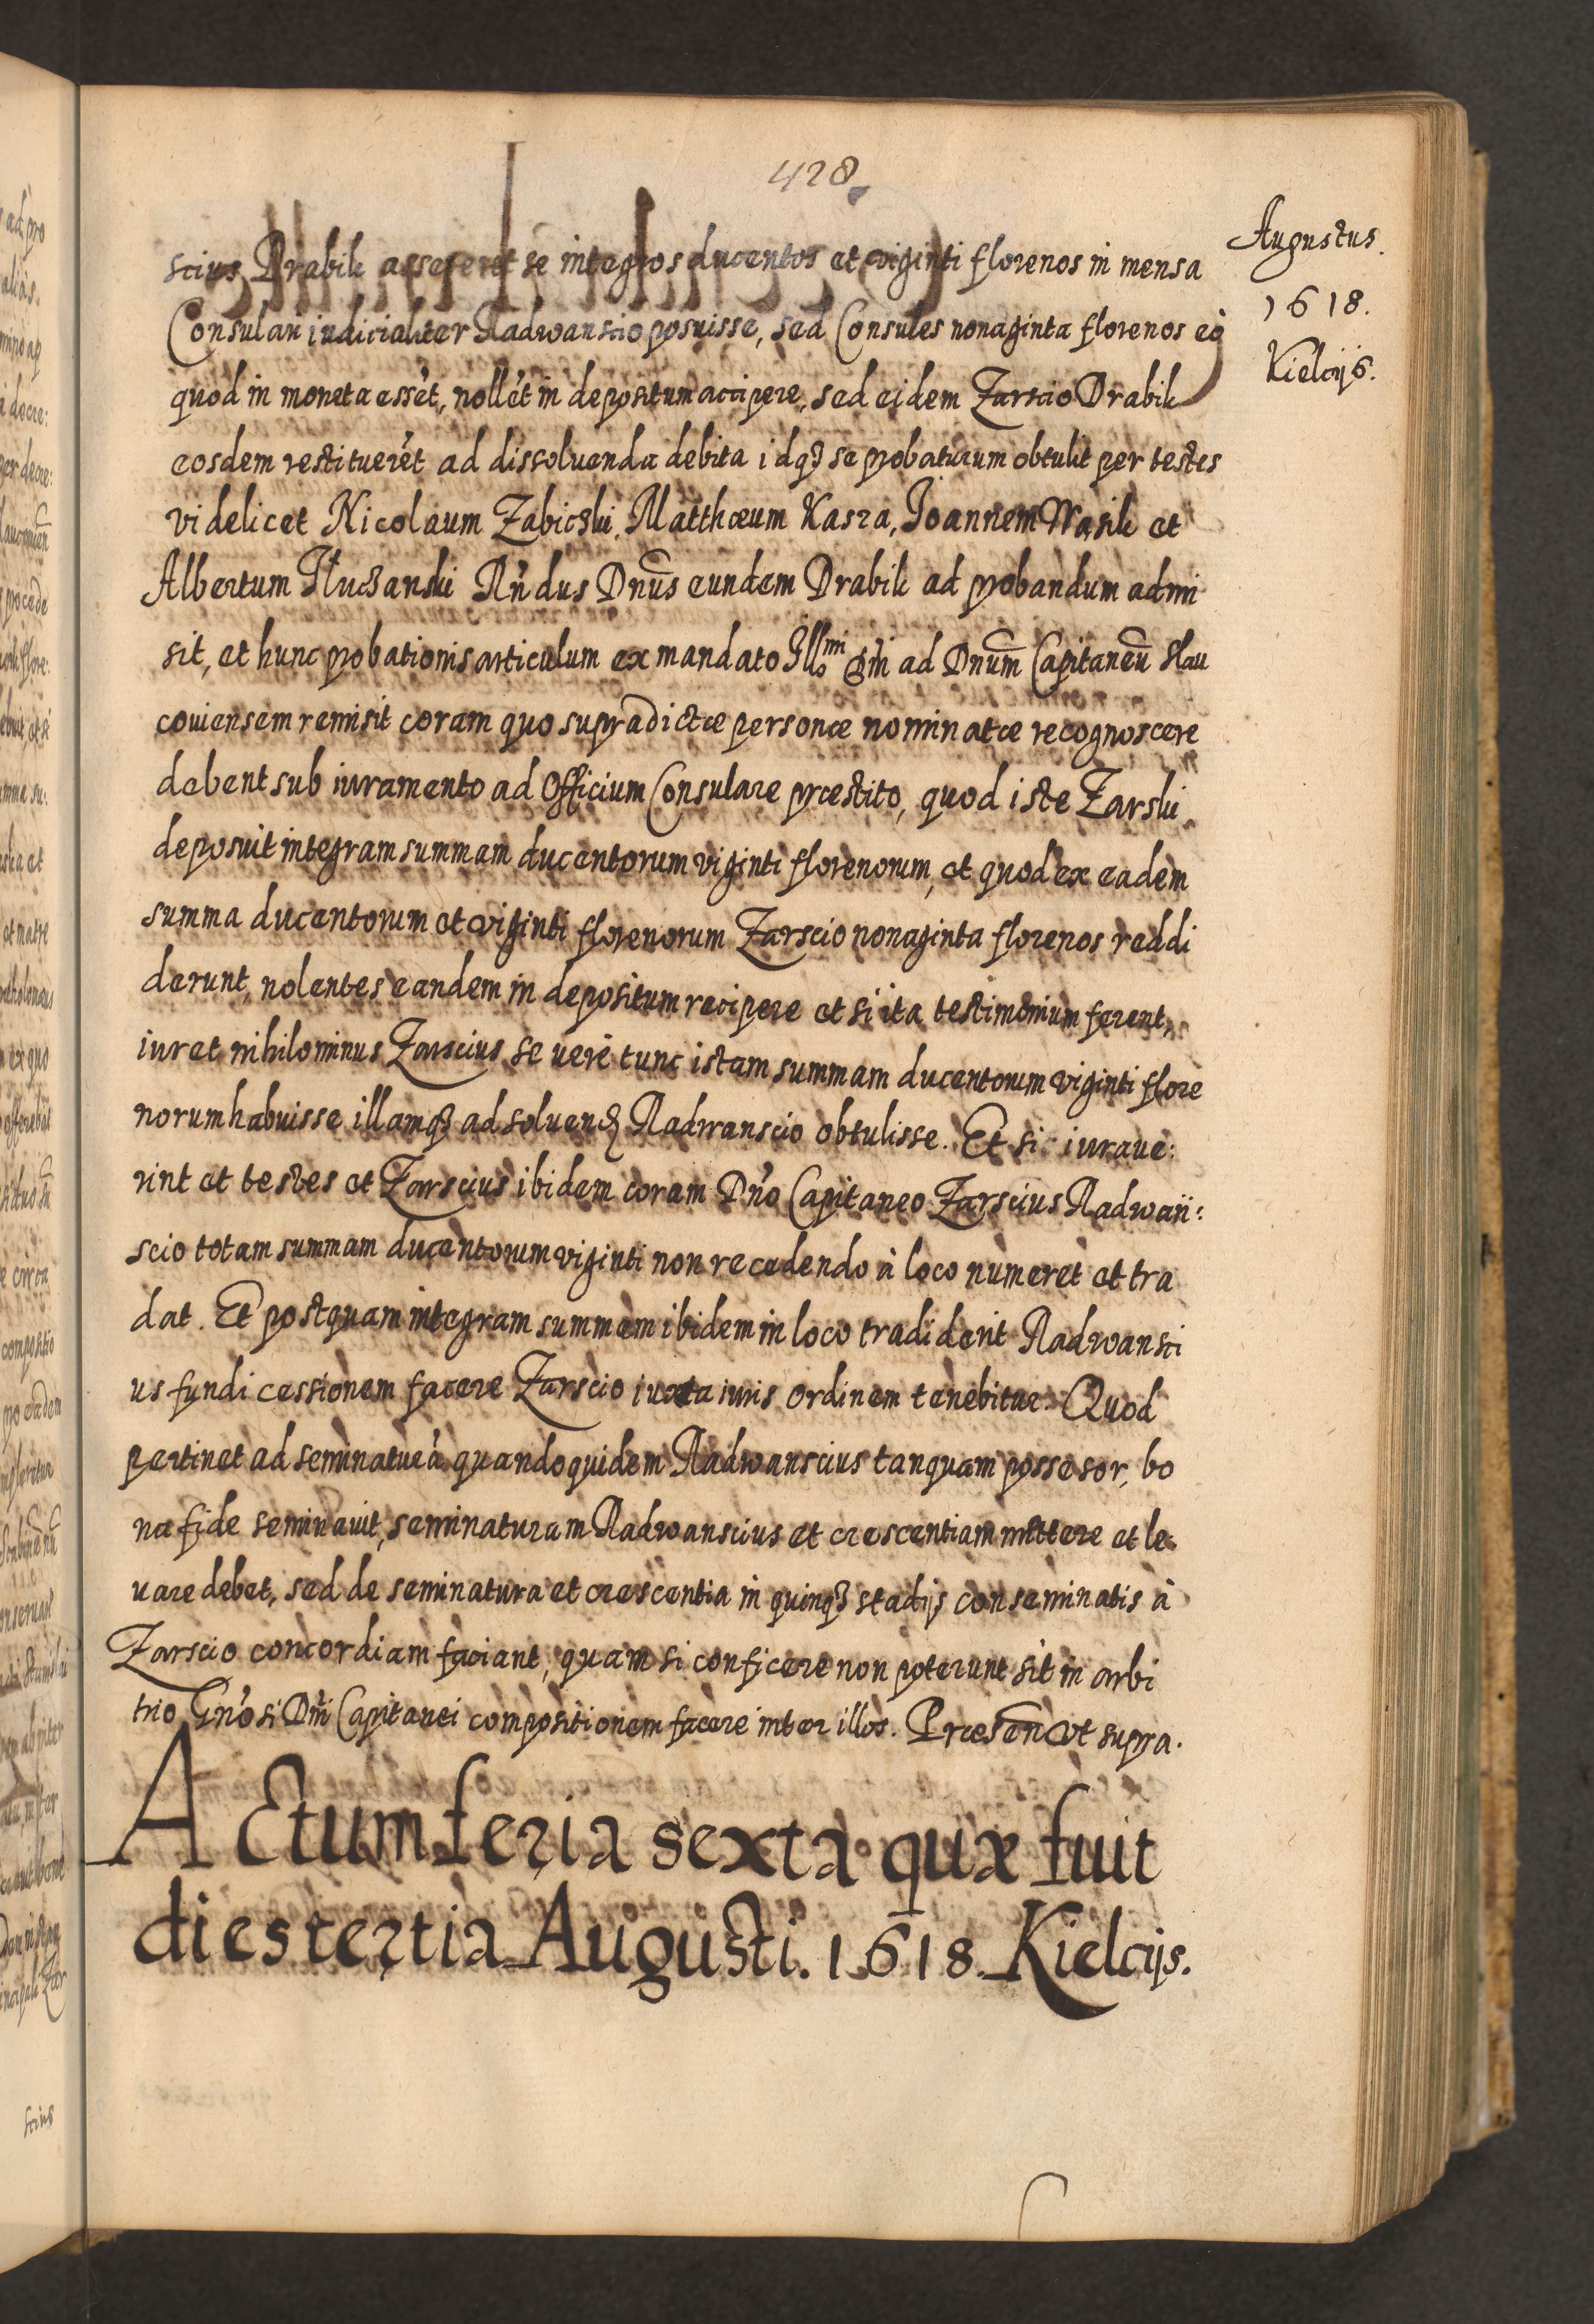 428
Augustus.
1618.
Kielcijs.
scius Drabik assereret se integros ducentos et viginti florenos in mensa
Consulari iudicialiter Radwanscio posuisse, sed Consules nonaginta florenos eò
quod in moneta essét, nollét in depositum accipere, sed eidem Zarscio Drabik
eosdem restituerét ad dissoluenda debita idqȝ se probaturum obtulit per testes
videlicet Nicolaum Zabicski, Matthæum Kasza, Joannem Wasik et
Albertum Hucsanski Rńdus Dnus eundem Drabik ad probandum admi
sit, et hunc probationis articulum ex mandato Illmi ad Dnum Capitaneū Slau
couiensem remisit coram quo supradictæ personæ nominatæ recognoscere
debent sub iuramento ad Officium Consulare præstito, quod iste Zarski
deposuit integram summam ducentorum viginti florenorum, et quod ex eadem
summa ducentorum et viginti florenorum Zarscio nonaginta florenos reddi
derunt, nolentes eandem in depositum recipere et si ita testimonium ferent,
iuret nihilominus Zarscius se verè tunc istam summam ducentorum viginti flore
norum habuisse illamqȝ ad soluend Radwanscio obtulisse. Et si iuraue:
rint et testes et Zarscius ibidem coram Dńo Capitaneo Zarscius Radwan:
scio totam summam ducentorum viginti non recedendo à loco numeret et tra
dat. Et postquam integram summam ibidem in loco tradiderit Radwansci
us fundi cessionem facere Zarscio iuxta iuris ordinem tenebitur. Quod
pertinet ad seminaturá quandoquidem Radwanscius tanquam possesor, bo
na fide seminauit, seminaturam Radwanscius et crescentiam mittere et le:
uare debet, sed de seminatura et crescentia in quinqȝ stadijs conseminatis à
Zarscio concordiam faciant, quam si conficere non poterunt sit in arbi
trio Gńosi Dńi Capitanei compositionem facere inter illos. Præsen ut supra.
Actum feria sexta quæ fuit
dies tertia Augusti. 1618. Kielcijs.